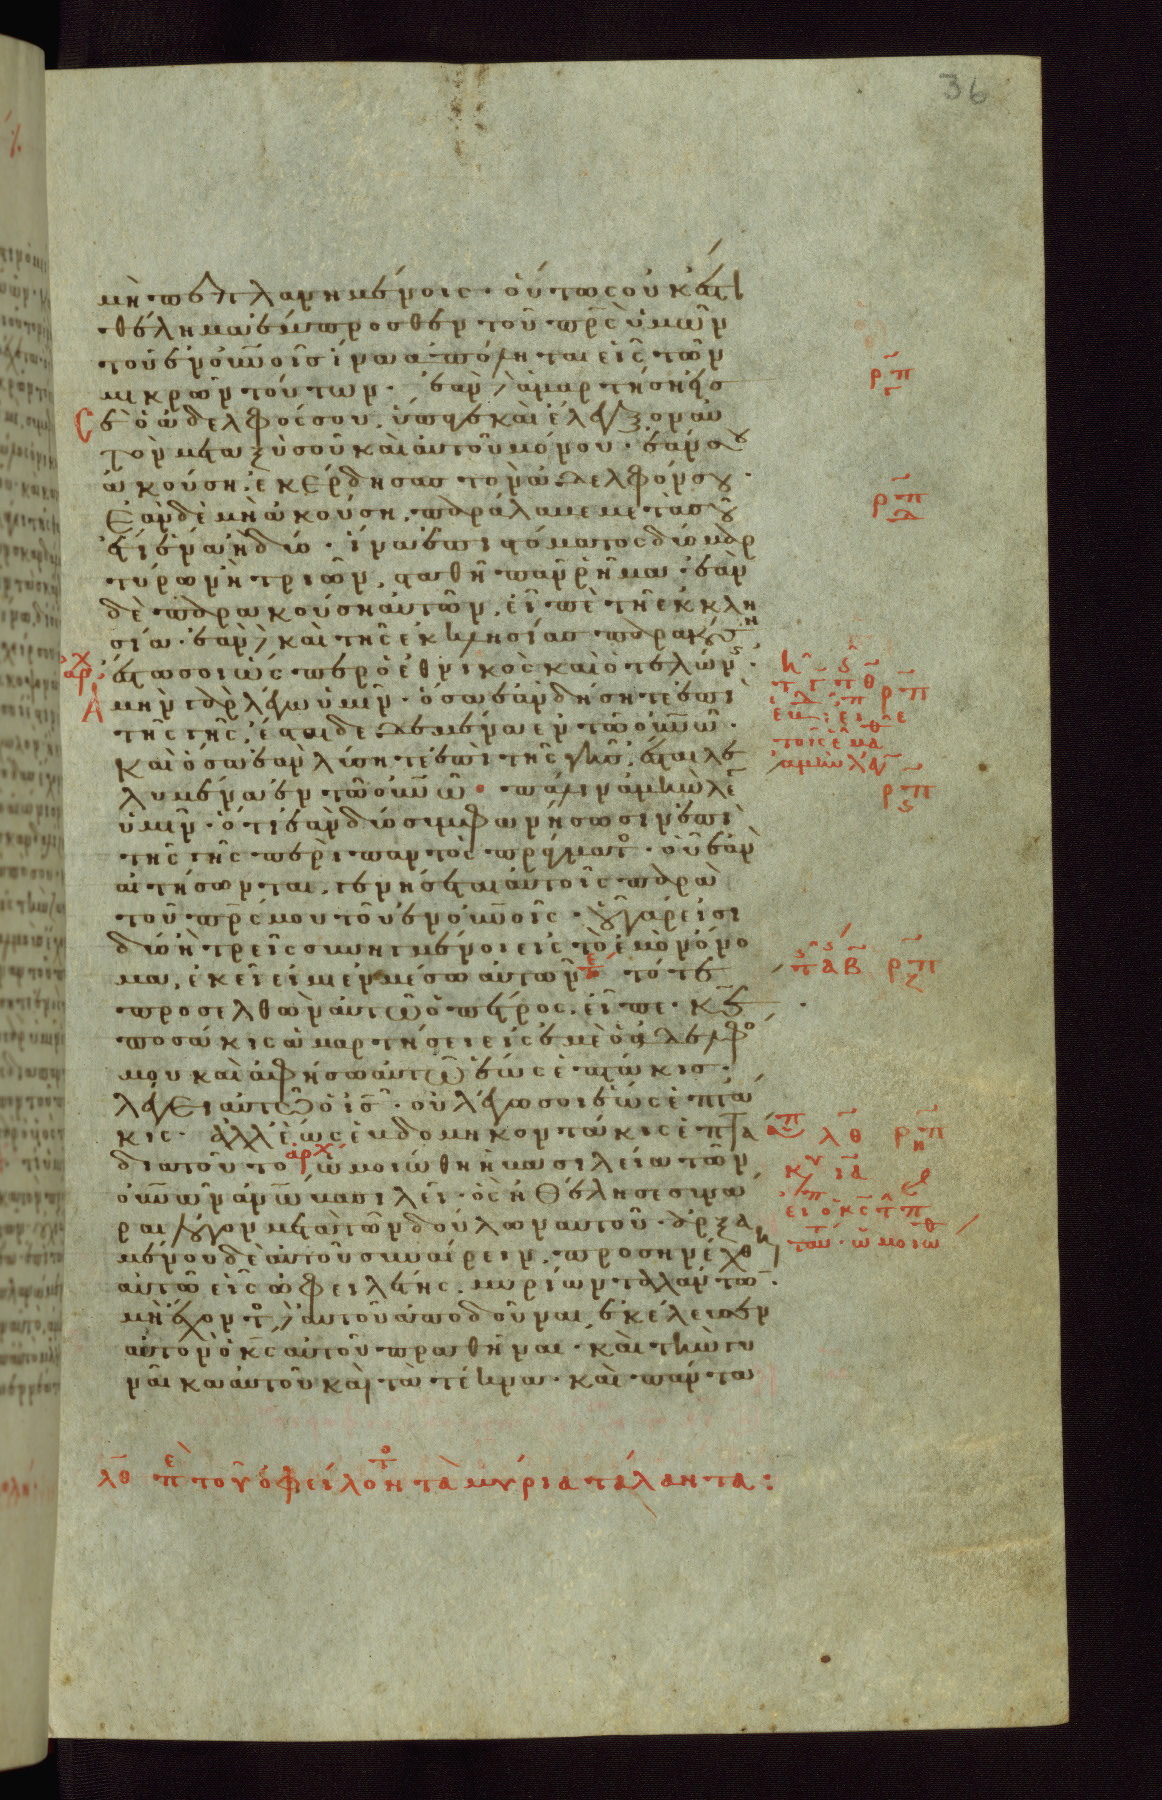 36
μὴ πεπλανημένοις · οὕτως οὐκ ἔστι
θέλημα ἔμπροσθεν τοῦ πρ̅ς ὑμῶν
τοῦ ἐν οὐνοῖς ἵνα ἀπόληται εἷς τῶν
μικρῶν τούτων · ἐὰν ἁμαρτήση εἰς σ
ὲ ὁ ἀδελφός σου, ὕπαγε καὶ ἔλεγξον αὐ
τὸν μεταξὺ σοῦ καὶ αὐτοῦ μόνου · ἐάν σου
ἀκούση, ἐκέρδησας τὸν ἀδελφόν σου ·
Ἐὰν δὲ μὴ ἀκούση, παράλαβε μετὰ σοῦ
ἔτι ἕνα ἢ δύο · ἵνα ἐπὶ στόματος δύο μαρ
τύρων ἢ τριῶν, σταθῆ πᾶν ῥῆμα · ἐὰν
δὲ παρακούση αὐτῶν, εἰπὲ τῆ ἐκκλη
σία · ἐὰν δὲ καὶ τῆς ἐκκλησίας παρακούση
ἔστω σοι ὥσπερ ὁ ἐθνικὸς καὶ ὁ τελώνς ·
ἀρχ
Ἀμὴν γὰρ λέγω ὑμῖν · ὅσα ἐὰν δήσητε ἐπὶ
τῆς γῆς, ἔσται δεδεμένα ἐν τῶ οὐνῶ ·
καὶ ὅσα ἐὰν λύσητε ἐπὶ τῆς γῆς, ἔσται λε
λυμένα ἐν τῶ οὐνῶ · πάλιν ἀμὴν λέγ
ὑμῖν · ὅτι ἐὰν δύο συμφωνήσωσιν ἐπὶ
τῆς γῆς περὶ παντὸς πράγματο · οὗ ἐὰν
αἰτήσωνται, γενήσεται αὐτοῖς παρὰ
τοῦ πρ̅ς μου τοῦ ἐν οὐνοῖς · οὗ γάρ εἰσι
δύο ἢ τρεῖς συνηγμένοι εἰς τὸ ἐμὸν ὄνο
μα, ἐκεῖ εἰμι ἐν μέσω αὐτῶν τότε
προσελθὼν αὐτῶ ὁ πέτρος, εἶπε · κε
ποσάκις ἁμαρτήσει εἰς ἐμὲ ὁ ἀδελφό
μου καὶ ἀφήσω αὐτῶ ἕως ἑπτάκις ·
λέγει αὐτῶ ὁ ις · οὐ λέγω σοι ἕως ἑπτά
κις · ἀλλ' ἕως ἑβδομηκοντάκις ἑπτά
διατοῦτο ἀρχ ὡμοιώθη ἡ βασιλεία τῶν
οὐνῶν ἀνω βασιλεῖ · ὃς ἠθέλησε συνᾶ
ραι λόγον μετὰ τῶν δούλων αὐτοῦ · ἀρξα
μένου δὲ αὐτοῦ συναίρειν, προσηνέχθη
αὐτῶ εἷς ὀφειλέτης, μυρίων ταλάντω ·
μὴ ἔχοντο δὲ αὐτοῦ ἀποδοῦναι, ἐκέλευσεν
αὐτὸν ὁ κς αὐτοῦ πραθῆναι · καὶ τὴν γυ
ναῖκα αὐτοῦ καὶ τὰ τέκνα · καὶ πάντα
λθ πε τοῦ ὀφείλοντο τὰ μύρια τάλαντα:
ρπγ
ρπδ
ρπε
ρπς
ρπζ
λθ ρπη